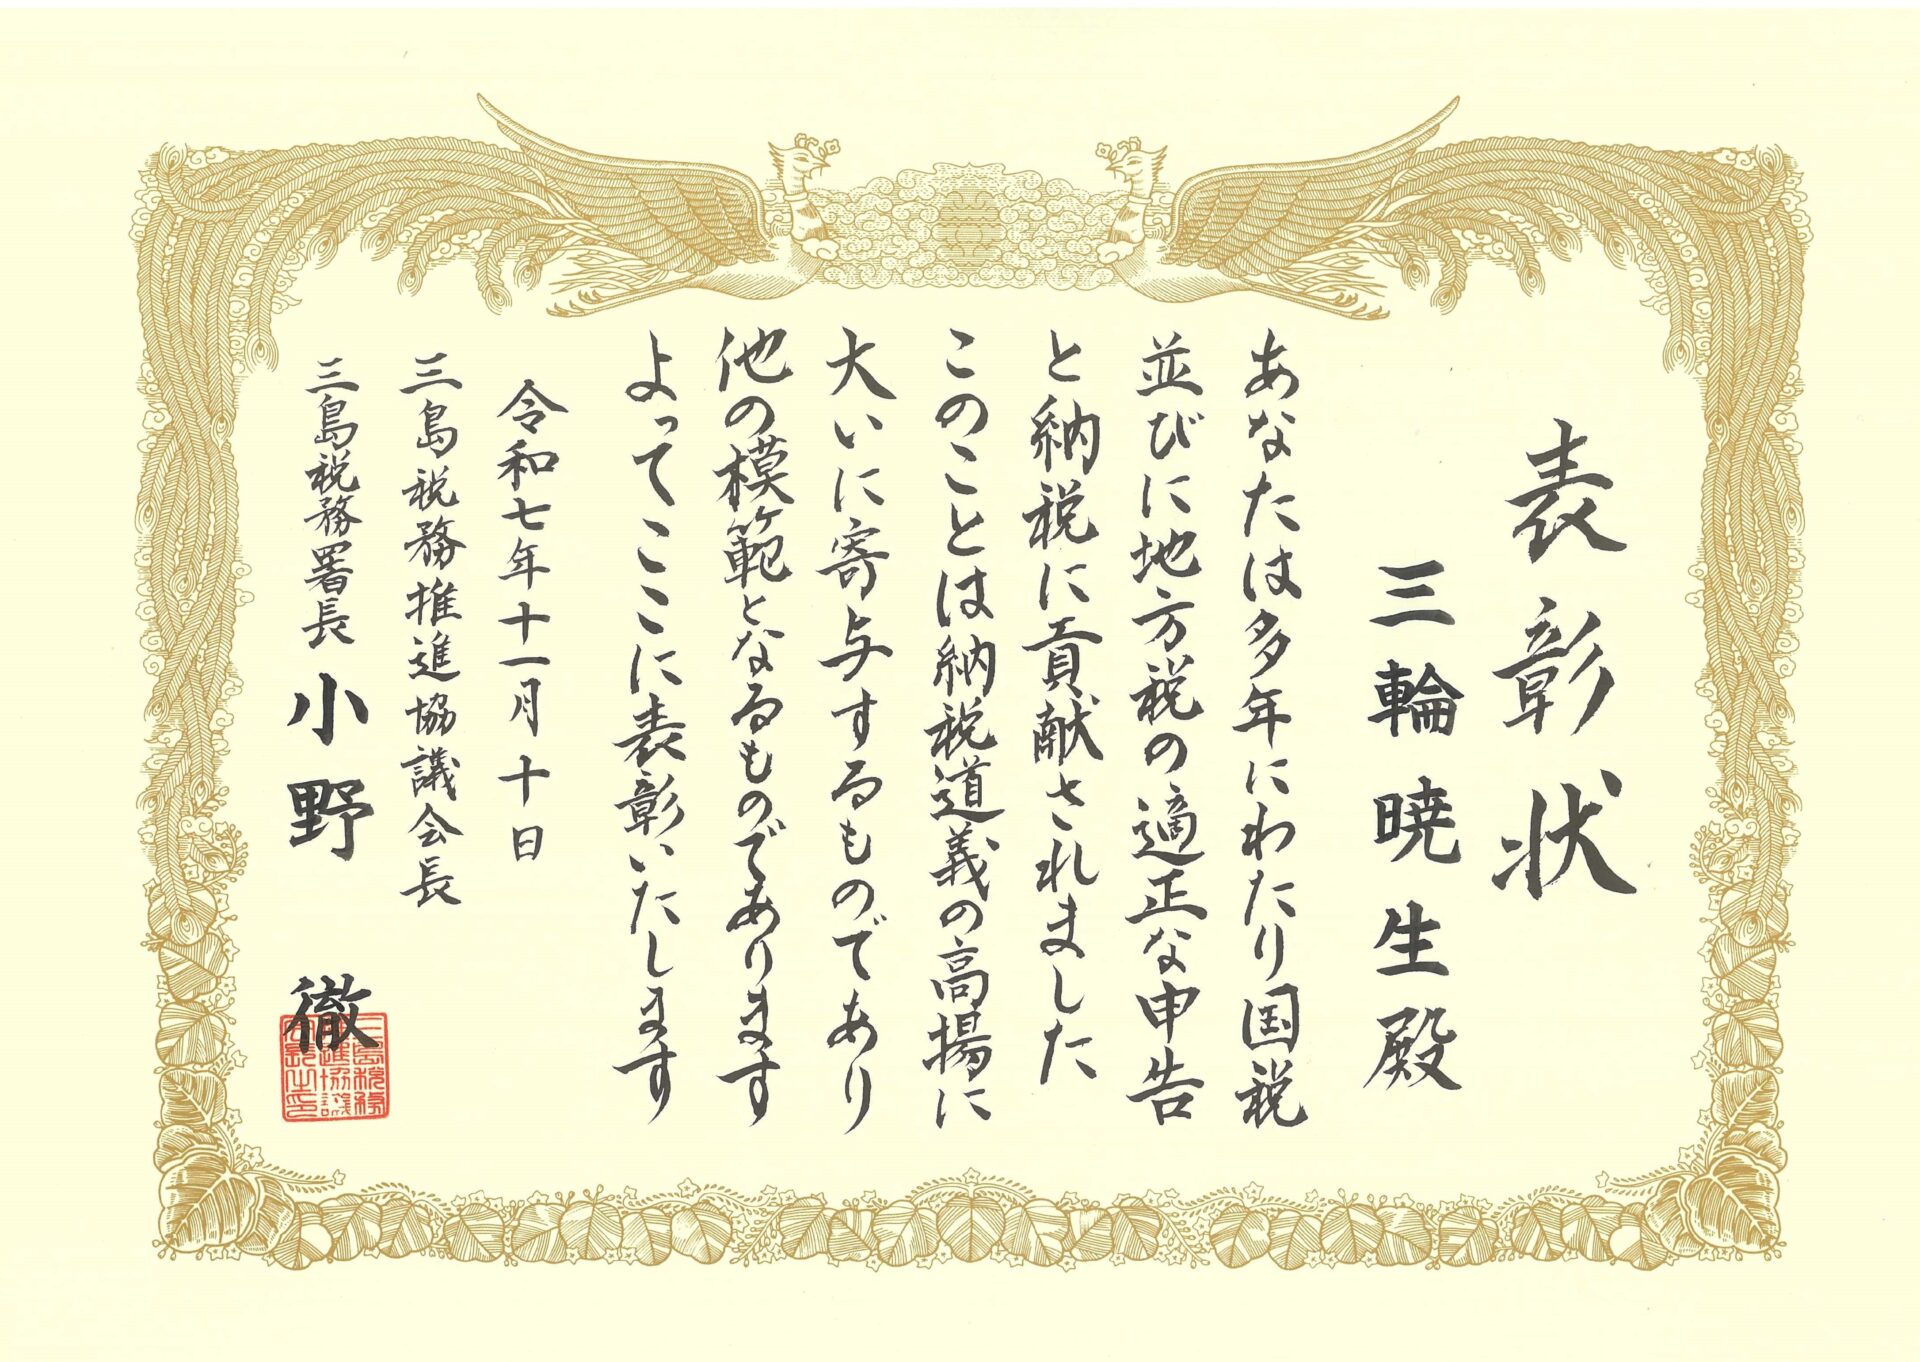 表彰状
三輪暁生殿
あなたは多年にわたり国税
並びに地方税の適正な申告
と納税に貢献されました
このことは納税道義の高揚に
大いに寄与するものであり
他の模範となるものであります
よってここに表彰いたします
令和七年十一月十日
三島税務推進協議会長
三島税務署長 小野 徹